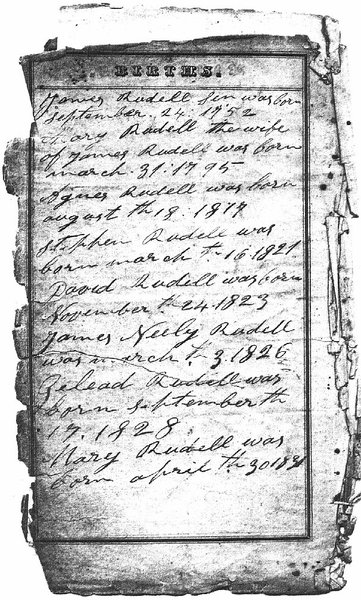 BIRTHS.
James Rudell sen was born
September. 24. 1752
Mary Rudell the wife
of James Rudell was born
march. 31. 1795
Agnes Rudell was born
august th 18. 1817
Stephen Rudell was
born march th 16 1821
David Rudell was born
November th 24 1823
James Neely Rudell
was march th 3. 1826
Gelead Rudell was
born September th
17. 1828
Mary Rudell was
born april th 30 183